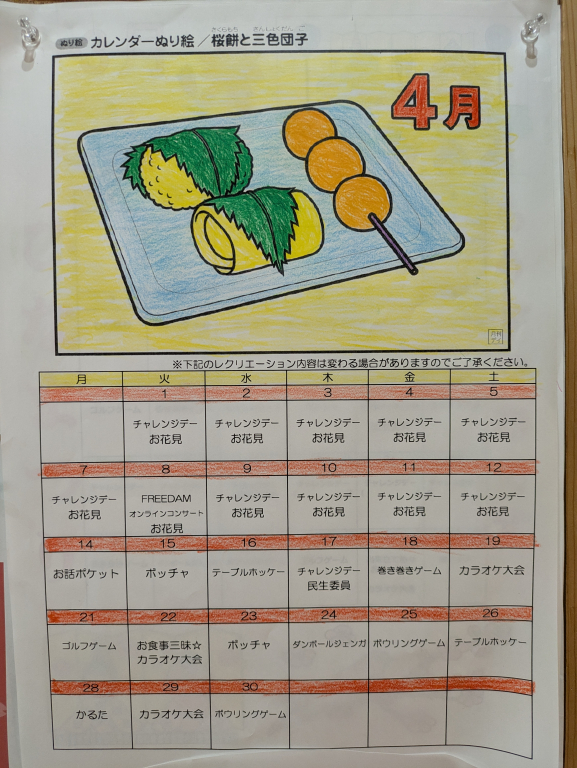 ぬり絵 カレンダーぬり絵／桜餅と三色団子
4月
※下記のレクリエーション内容は変わる場合がありますのでご了承ください。
月 火 水 木 金 土
1 2 3 4 5
チャレンジデー チャレンジデー チャレンジデー チャレンジデー チャレンジデー
お花見 お花見 お花見 お花見 お花見
7 8 9 10 11 12
チャレンジデー FREEDAM チャレンジデー チャレンジデー チャレンジデー チャレンジデー
お花見 オンラインコンサート お花見 お花見 お花見 お花見
お花見
14 15 16 17 18 19
お話ポケット ボッチャ テーブルホッケー チャレンジデー 巻き巻きゲーム カラオケ大会
民生委員
21 22 23 24 25 26
ゴルフゲーム お食事三昧☆ ボッチャ ダンボールジェンガ ボウリングゲーム テーブルホッケー
カラオケ大会
28 29 30
かるた カラオケ大会 ボウリングゲーム